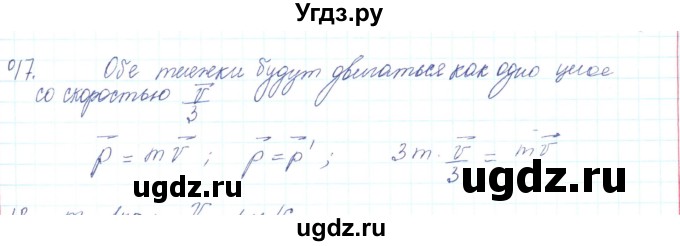 Угдз.ру
017. Обе тележки будут двигаться как одно целое
со скоростью v⃗/3
p⃗ = mv⃗ ; p⃗ = p⃗' ; 3m · v⃗/3 = mv⃗
ugdz.ru ugdz.ru ugdz.ru
ugdz.ru ugdz.ru ugdz.ru